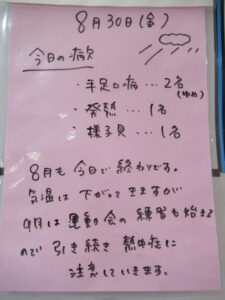 8月30日(金)
今日の病欠
・手足口病…2名
(ゆめ)
・発熱…1名
・様子見…1名
8月も今日で終わりです。
気温は下がってきますが
9月は運動会の練習も始まる
ので引き続き熱中症に
注意していきます。